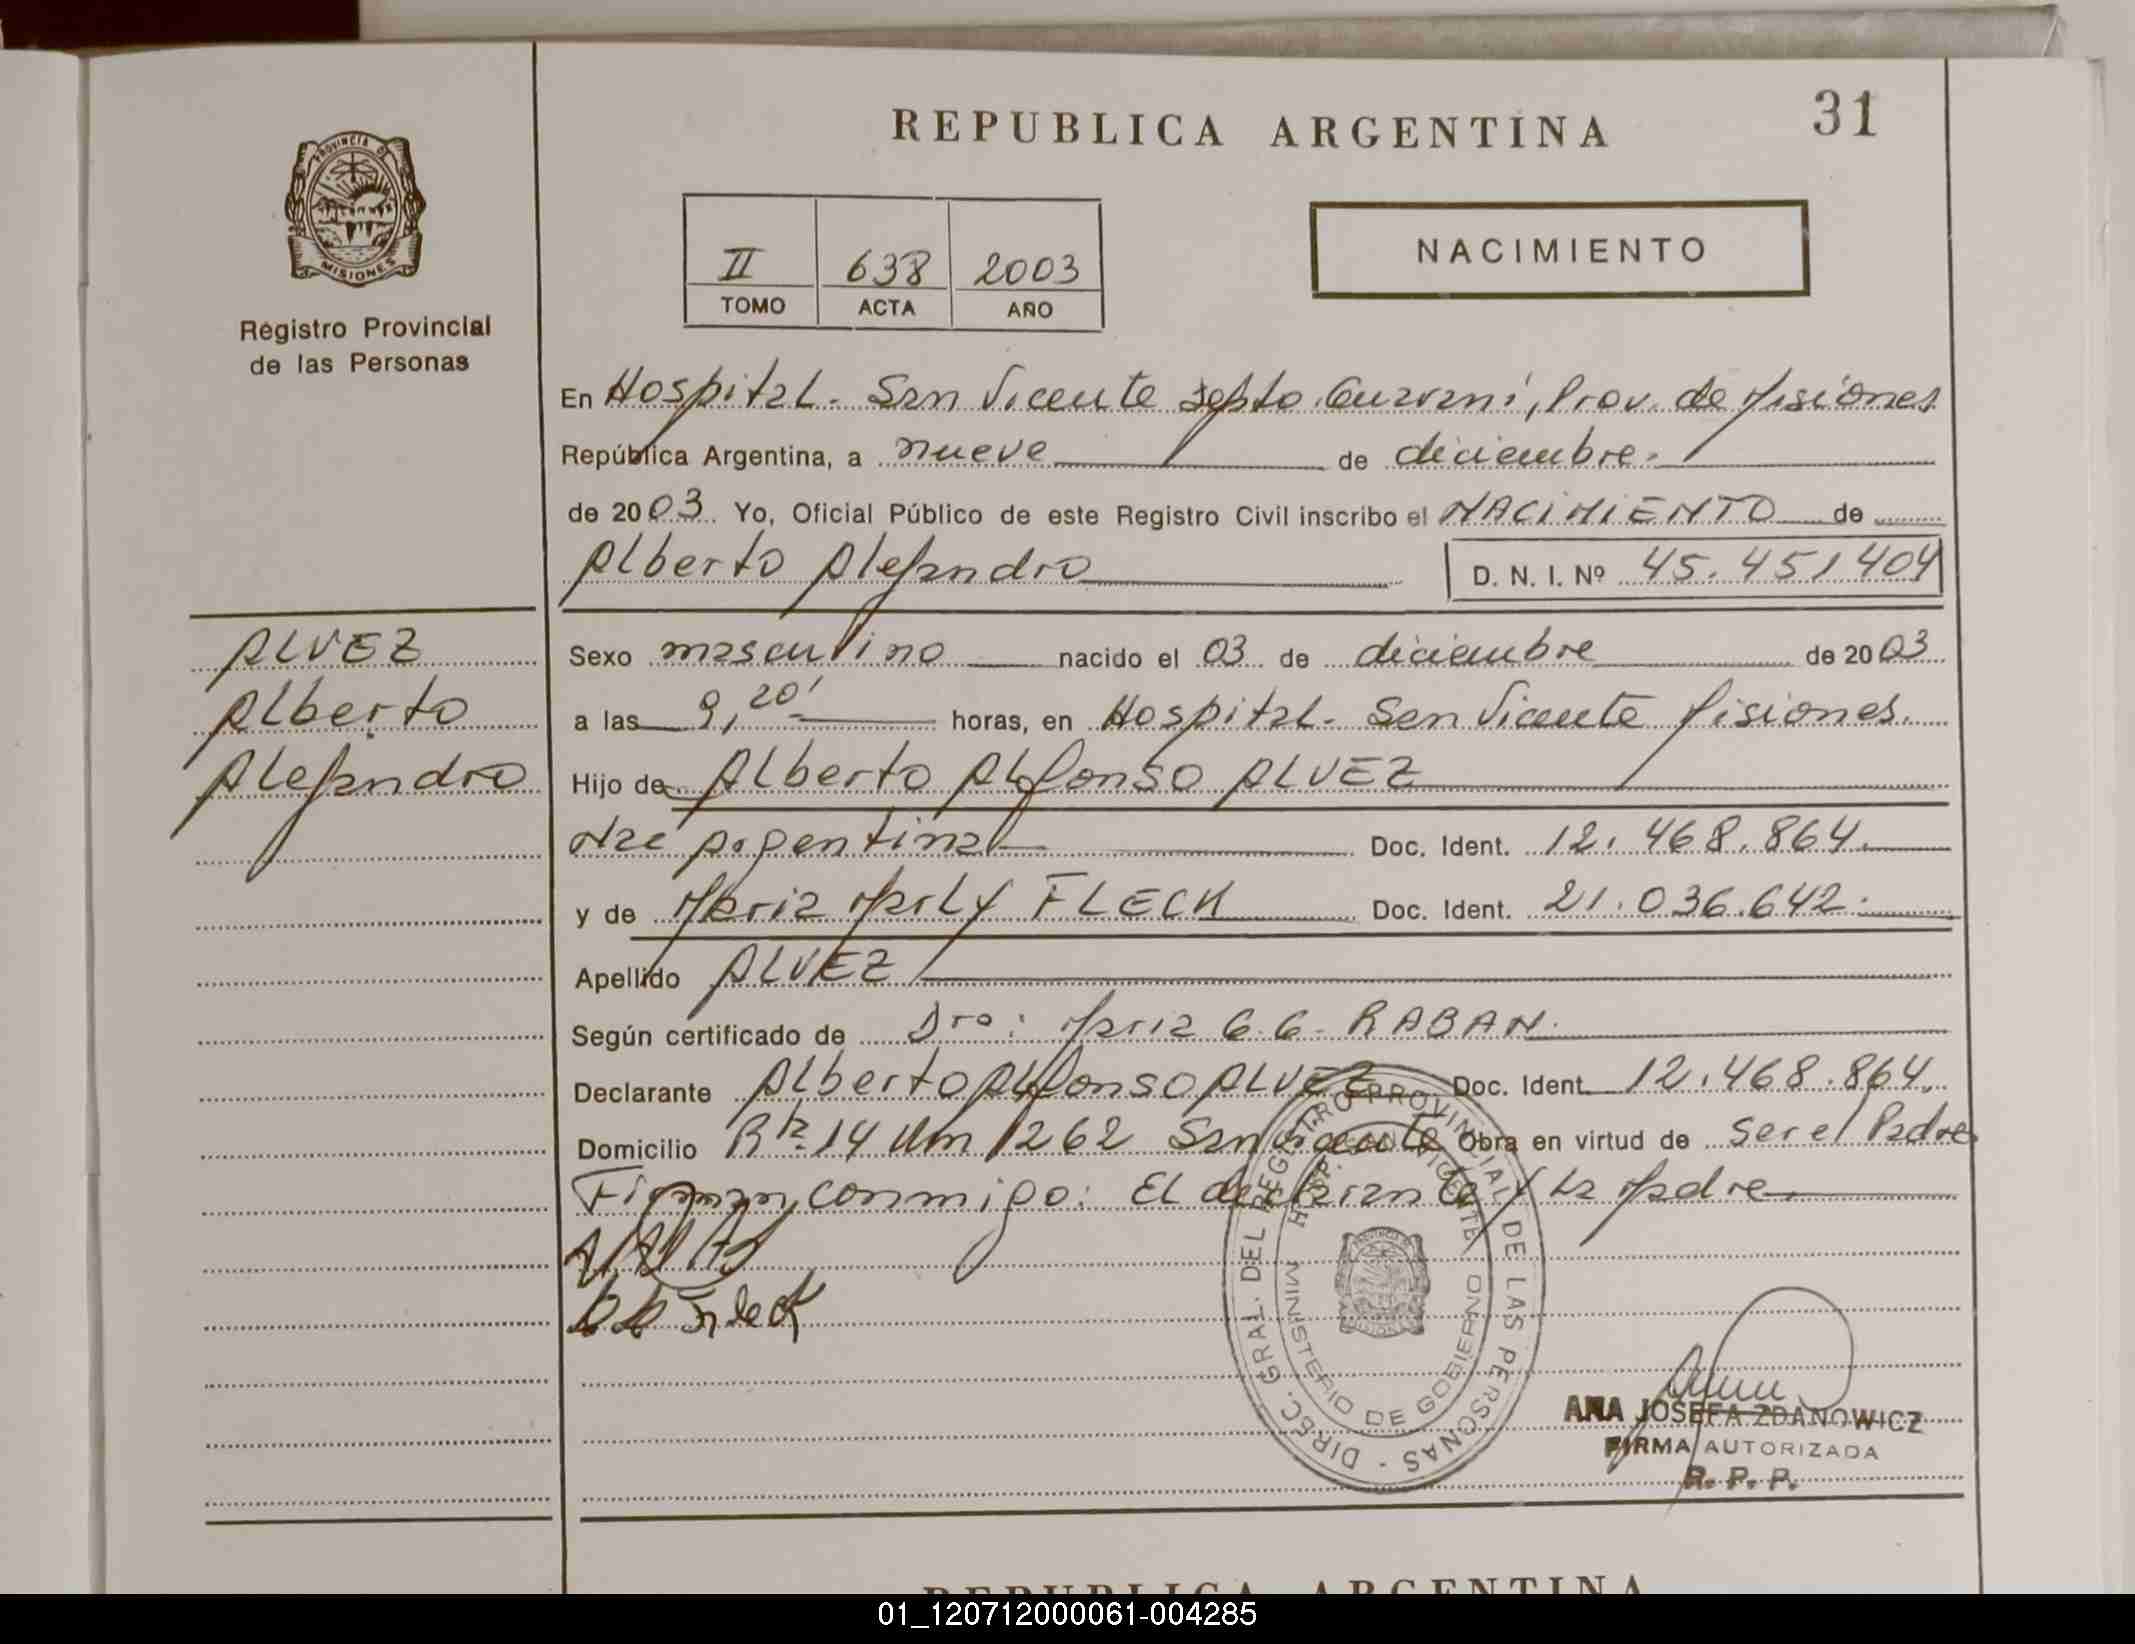 REPUBLICA ARGENTINA
31
PROVINCIA DE
MISIONES
Registro Provincial
de las Personas
II 638 2003
TOMO ACTA AÑO
NACIMIENTO
En Hospital - San Vicente Depto. Guaraní, Prov. de Misiones
República Argentina, a nueve de diciembre.
de 2003 Yo, Oficial Público de este Registro Civil inscribo el NACIMIENTO de
Alberto Alejandro D. N. I. Nº 45.451404
ALVEZ
Alberto
Alejandro
Sexo masculino nacido el 03 de diciembre de 2003
a las 9,20' horas, en Hospital - San Vicente Misiones.
Hijo de Alberto Alfonso ALVEZ
Nac Argentina Doc. Ident. 12.468.864.
y de Maria Marly FLECK Doc. Ident. 21.036.642.
Apellido ALVEZ
Según certificado de Dra: Maria G.G. RABAN.
Declarante Alberto Alfonso ALVEZ Doc. Ident. 12.468.864.
Domicilio Rta. 14 Km 1262 San Vicente Obra en virtud de ser el Padre.
Firman conmigo: El declarante y la Madre.
Fleck
DIREC. GRAL. DEL REGISTRO PROVINCIAL DE LAS PERSONAS -
HOSP. SAN VICENTE
MINISTERIO DE GOBIERNO
ANA JOSEFA ZDANOWICZ
FIRMA AUTORIZADA
R. P. P.
REPUBLICA ARGENTINA
01_120712000061-004285